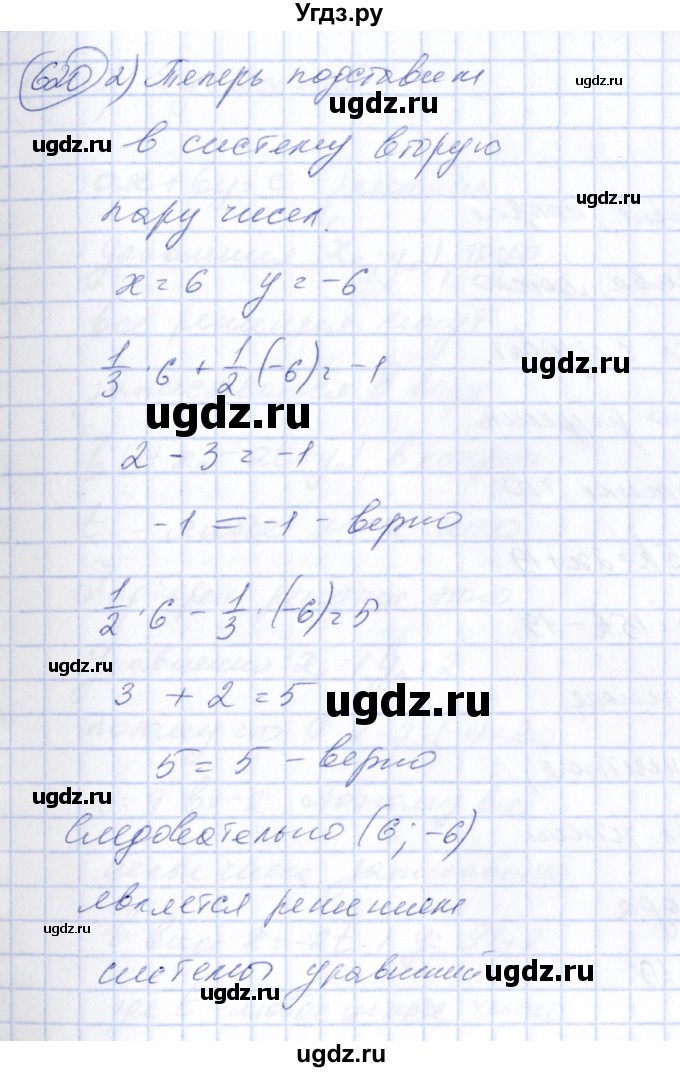 Угдз.ру
620 2) Теперь подставим
ugdz.ru
ugdz.ru
в систему вторую
ugdz.ru
ugdz.ru
пару чисел.
x = 6 y = -6
1/3 · 6 + 1/2 (-6) = -1
ugdz.ru
ugdz.ru
2 - 3 = -1
-1 = -1 - верно
1/2 · 6 - 1/3 · (-6) = 5
ugdz.ru
3 + 2 = 5
ugdz.ru
5 = 5 - верно
ugdz.ru
Следовательно (6; -6)
является решением
ugdz.ru
системы уравнений
ugdz.ru
ugdz.ru
ugdz.ru